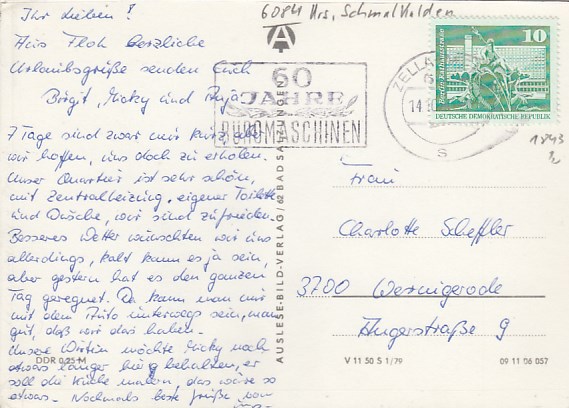 Ihr Lieben!
Aus Floh herzliche
Urlaubsgrüße senden Euch
Birgit, Micky und Anja
7 Tage sind zwar nur kurz, aber
wir hoffen, uns doch zu erholen.
Unser Quartier ist sehr schön,
mit Zentralheizung, eigener Toilette
und Dusche, wir sind zufrieden.
Besseres Wetter wünschten wir uns
allerdings, kalt kann es ja sein,
aber gestern hat es den ganzen
Tag geregnet. Da kann man nur
mit dem Auto unterwegs sein, nur
gut, daß wir das haben.
Unsere Wirtin möchte Micky noch
etwas länger hierbehalten, er
soll die Küche malern, das wäre so
etwas. Nochmals beste Grüße von
DDR 0,25 M
AUSLESE-BILD-VERLAG / 62 BAD SALZUNGEN
6084 Krs. Schmalkalden
60
JAHRE
BÜROMASCHINEN
ZELLA
14.
S
10
Berlin, Rathausstraße
DEUTSCHE DEMOKRATISCHE REPUBLIK
1843
Frau
Charlotte Scheffler
3700 Wernigerode
Angerstraße 9
V 11 50 S 1/79
09 11 06 057